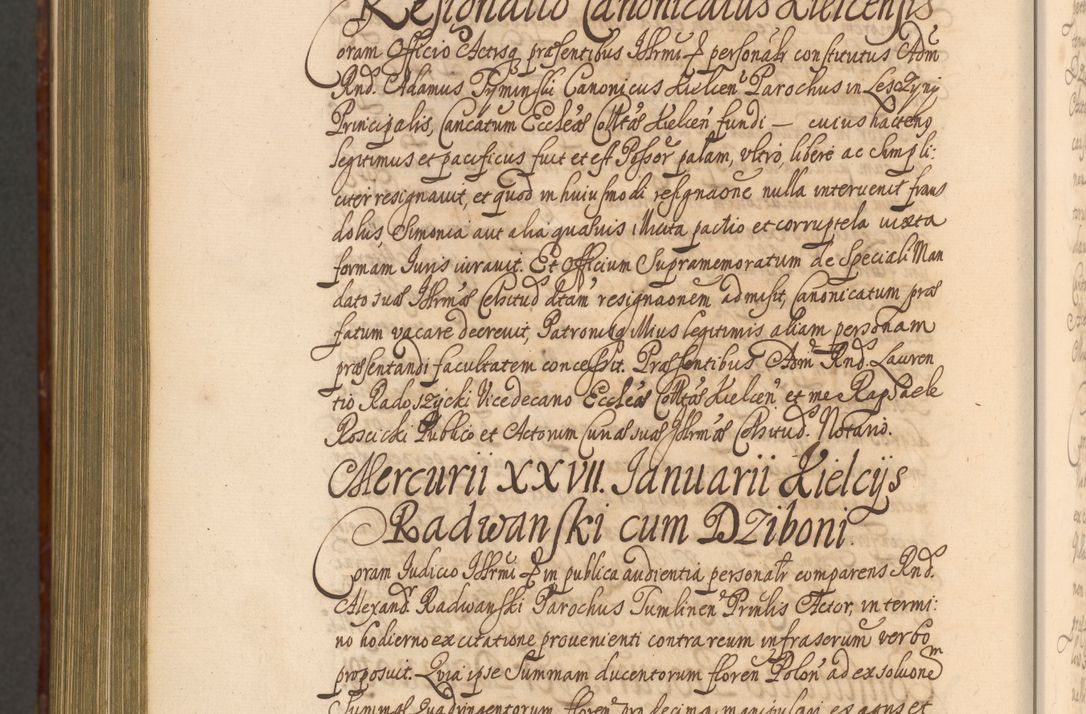 Resignatio Canonicatus Kielcensis
Coram Officio Actisq præsentibus Illrmi &c personalr constitutus Adm
Rnd. Adamus Tyminski Canonicus Kielcen Parochus in Lesczyny
Principalis, Canċatum Eccleæ Colltæ Kielcen fundi — cuius hacteno
legitimus et pacificus fuit et est Possor palam, vltro, libere ac simpli:
citer resignavit, et quod in huiusmodi resignaone nulla intervenit fraus
dolus Simonia aut alia quavis illicita pactio et corruptela iuxta
formam Iuris iuravit. Et Officium Supramemoratum de Speciali Man
dato suæ Illrmæ Celsitud dtam resignaonem admisit, Canonicatum præ
fatum vacare decrevit, Patronisq illius legitimis aliam personam
præsentandi facultatem concessit. Præsentibus Adm Rnd. Lauren
tio Radoszycki Vicedecano Eccleæ Colltæ Kielcen et me Raphaele
Roscicki Publico et Actorum Curiæ suæ Illrmæ Celsitud. Notario.
Mercurii XXVII. Ianuarii Kielcijs
Radwanski cum Dziboni
Coram Iudicio Illrmi &c in publica audientia personalr comparens Rnd.
Alexand. Radwanski Parochus Tumlinen Prnlis Actor, in termi:
no hodierno ex citatione provenienti contra reum infrascrum verbo
proposuit. Quia ipse Summam ducentorum floren Polon ad exsolvone͞m
Summæ Quadringentorum floren pro decima manipulari ex agris et